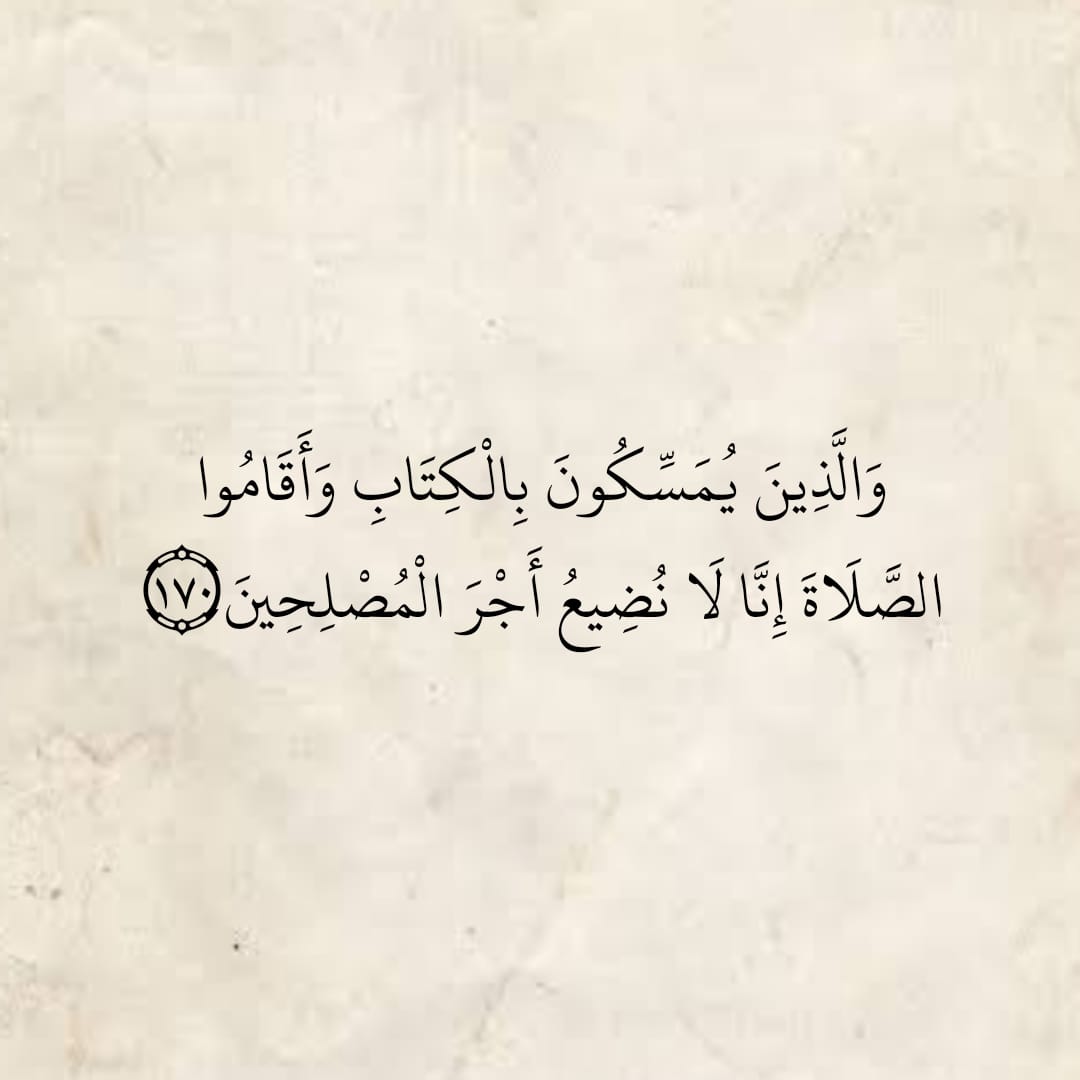 وَالَّذِينَ يُمَسِّكُونَ بِالْكِتَابِ وَأَقَامُوا
الصَّلَاةَ إِنَّا لَا نُضِيعُ أَجْرَ الْمُصْلِحِينَ ١٧٠